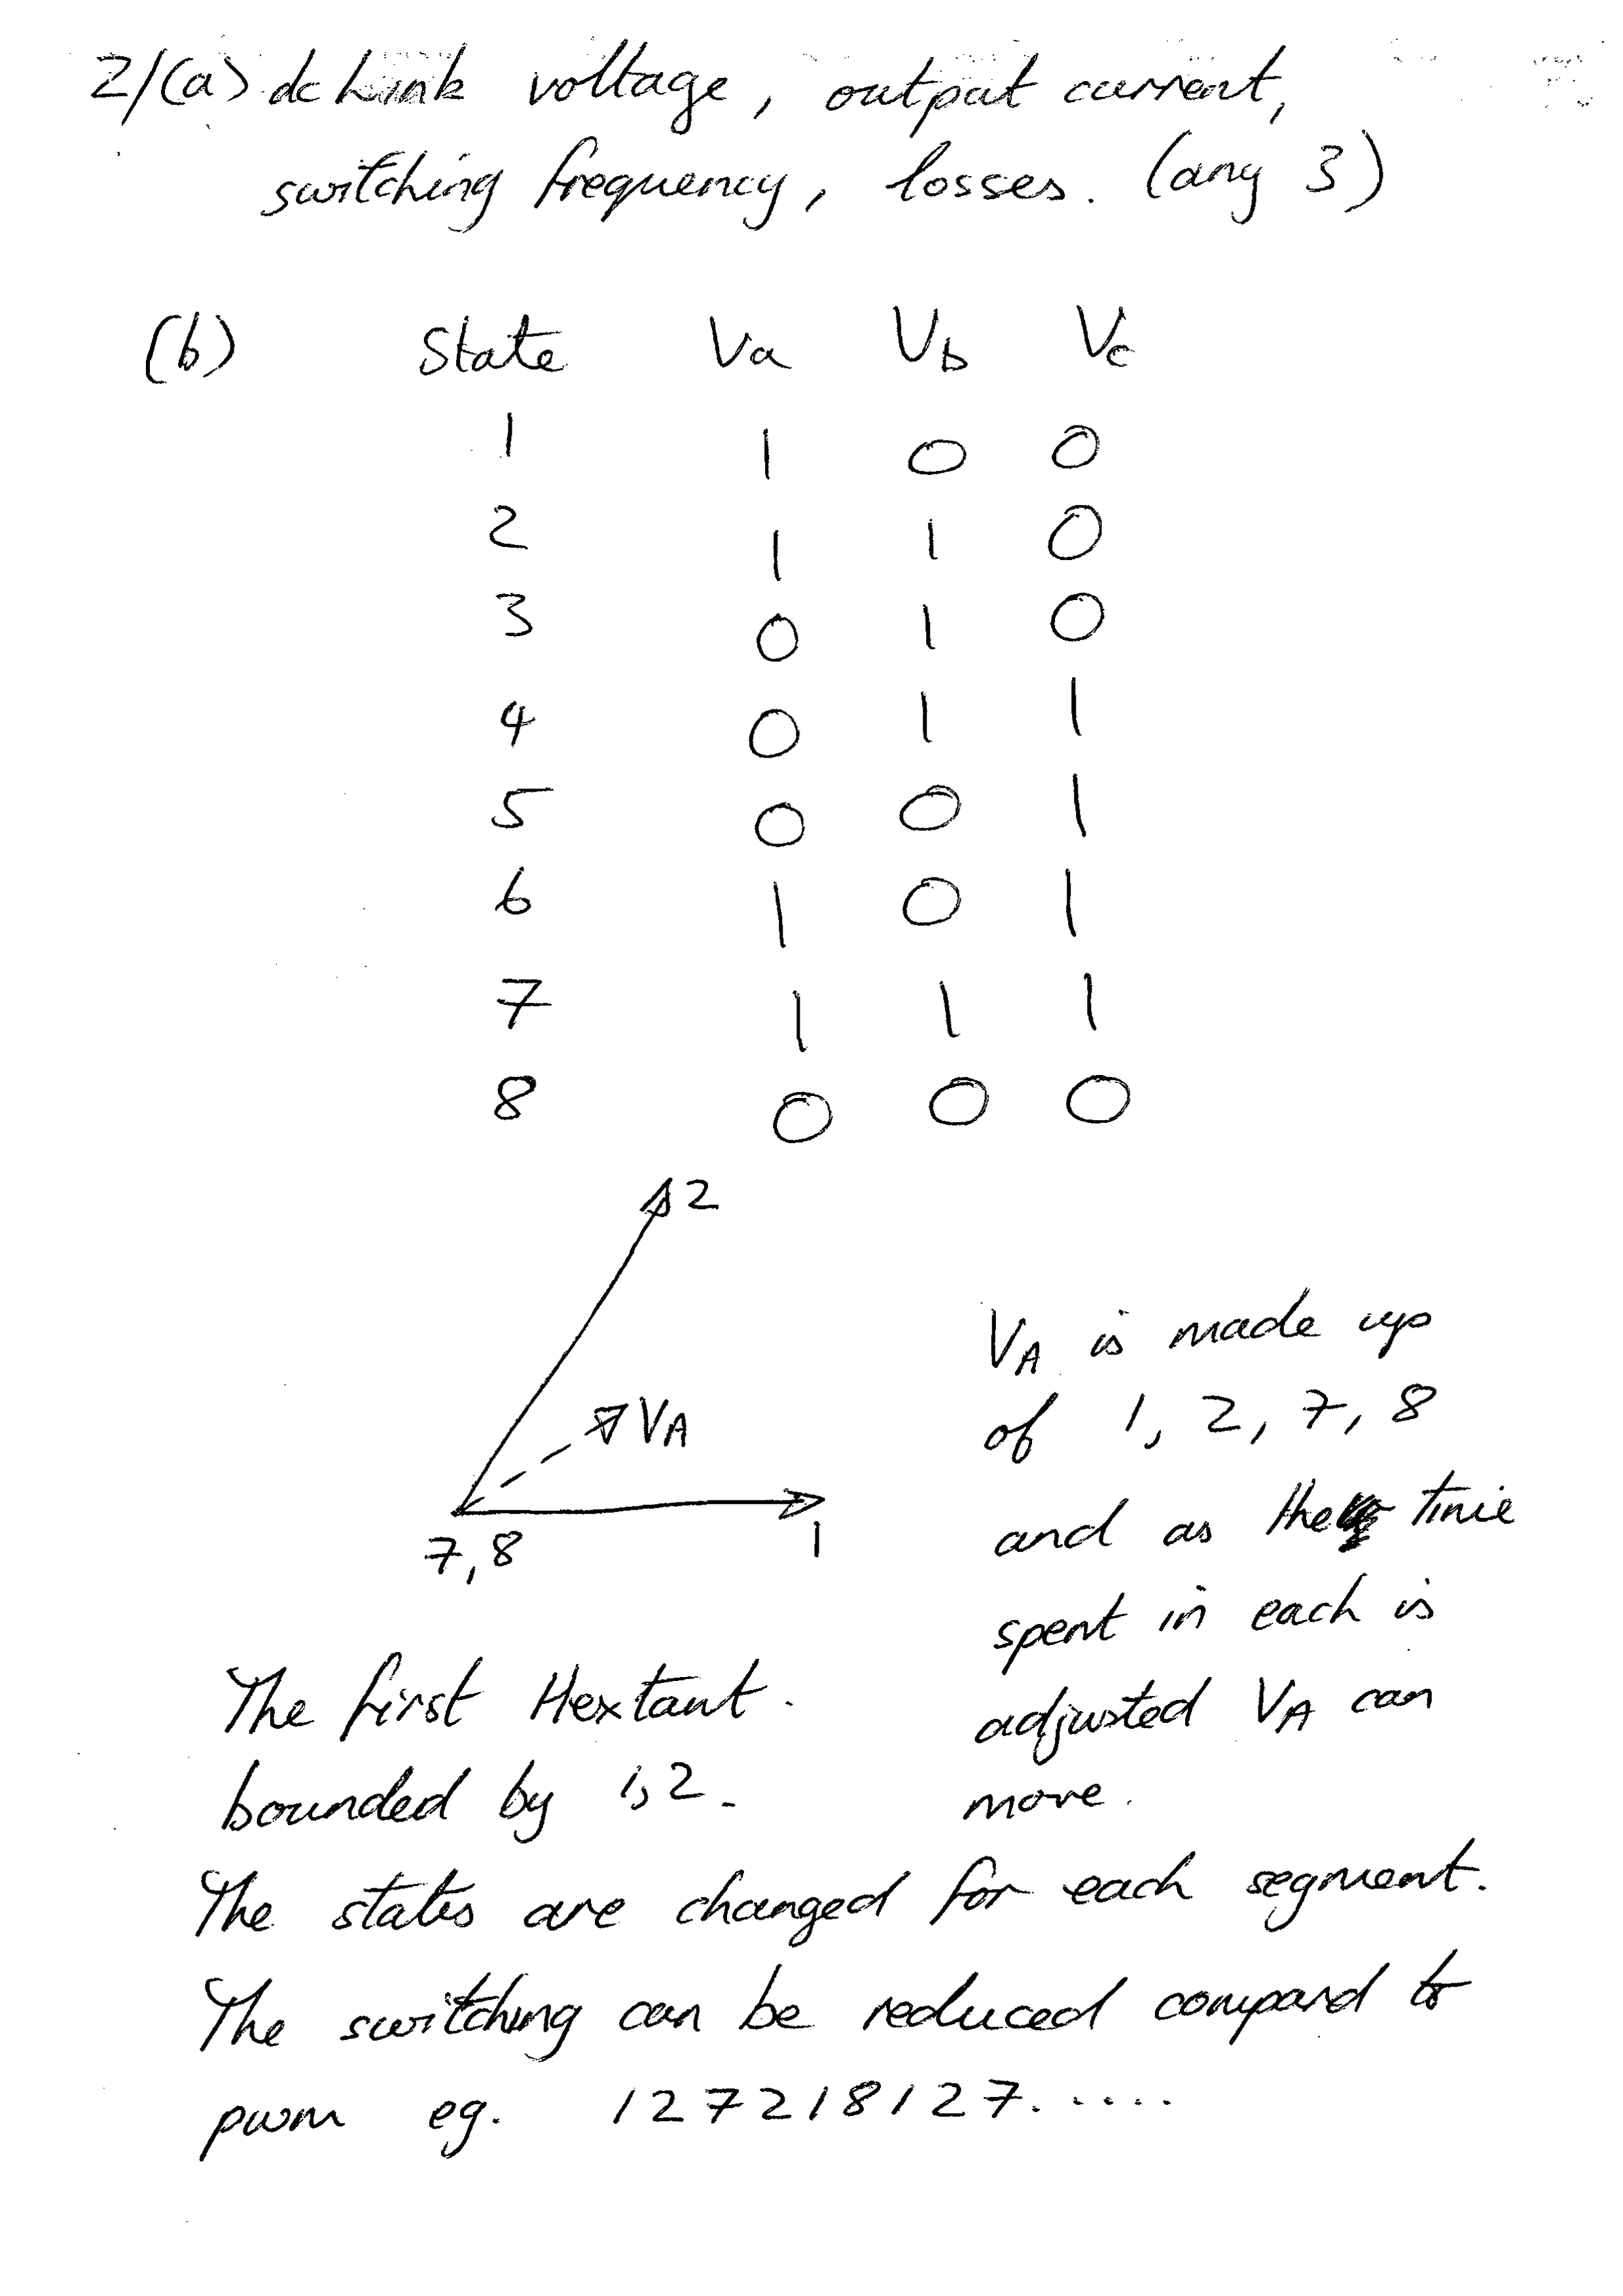 2/(a) dc Link voltage, output current,
switching frequency, losses. (any 3)
(b) State Va Vb Vc
1 1 0 0
2 1 1 0
3 0 1 0
4 0 1 1
5 0 0 1
6 1 0 1
7 1 1 1
8 0 0 0
2
VA
7,8
1
VA is made up
of 1, 2, 7, 8
and as the time
spent in each is
adjusted VA can
move.
The first Hextant.
bounded by 1,2.
The states are changed for each segment.
The switching can be reduced compard to
pwm eg. 127218127......